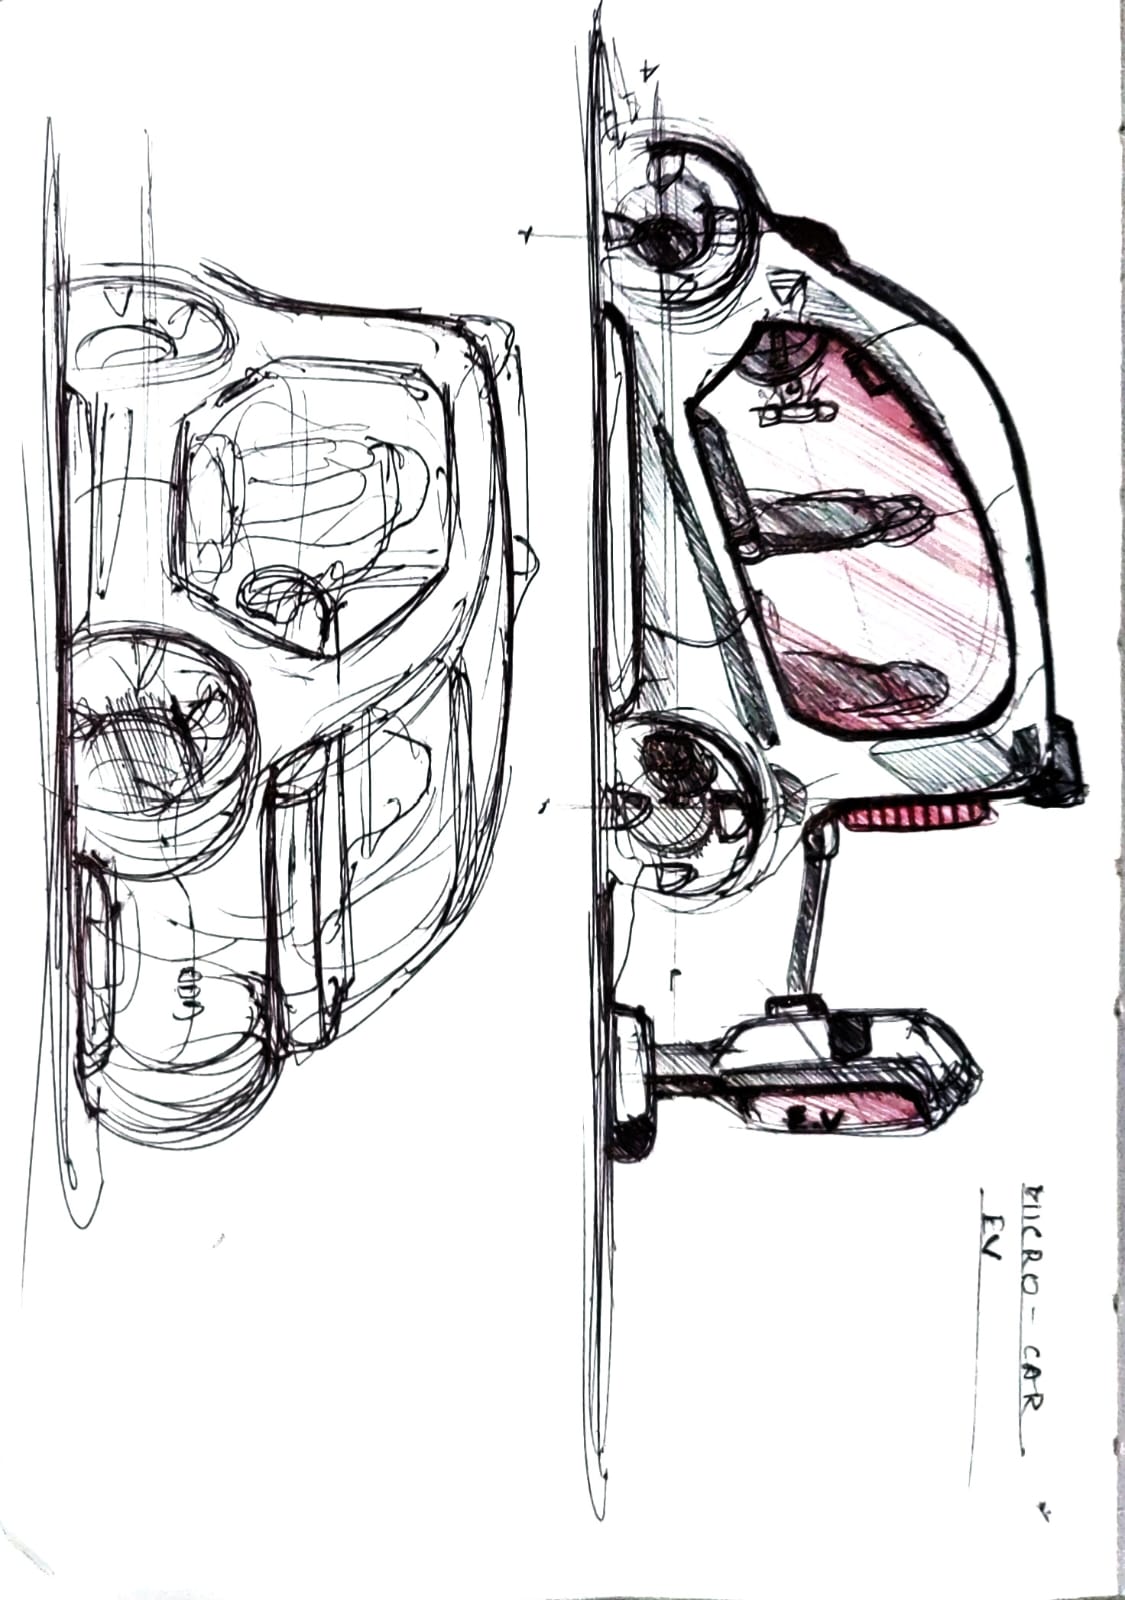 MICRO-CAR
EV
EV